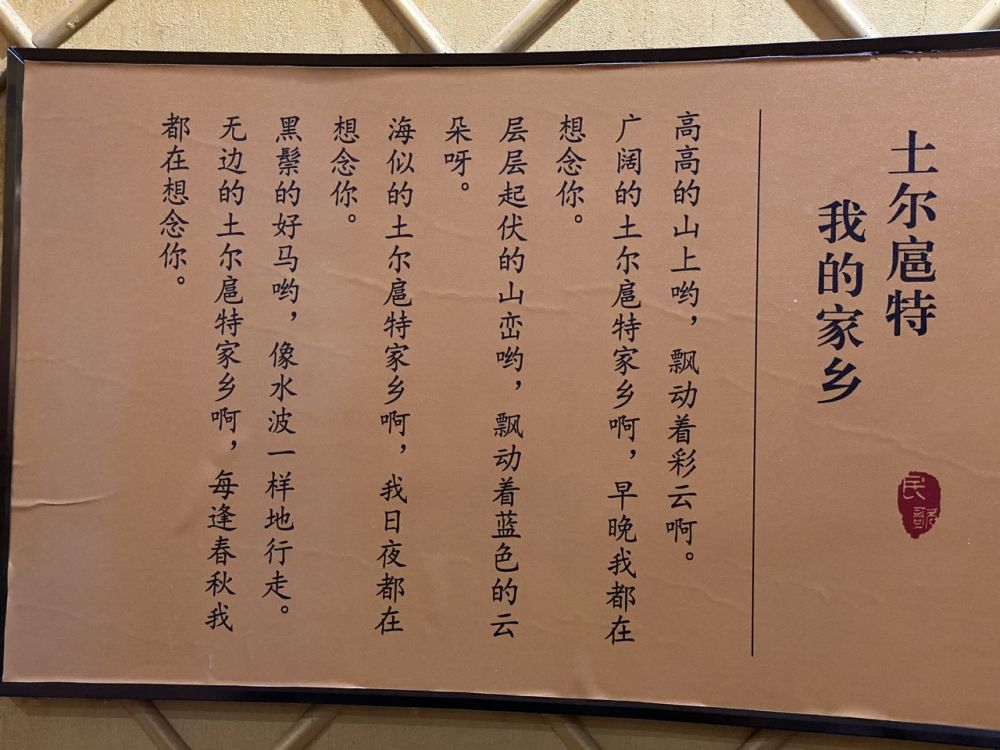 土尔扈特
我的家乡
民歌
高高的山上哟，飘动着彩云啊。
广阔的土尔扈特家乡啊，早晚我都在
想念你。
层层起伏的山峦哟，飘动着蓝色的云
朵呀。
海似的土尔扈特家乡啊，我日夜都在
想念你。
黑鬃的好马哟，像水波一样地行走。
无边的土尔扈特家乡啊，每逢春秋我
都在想念你。